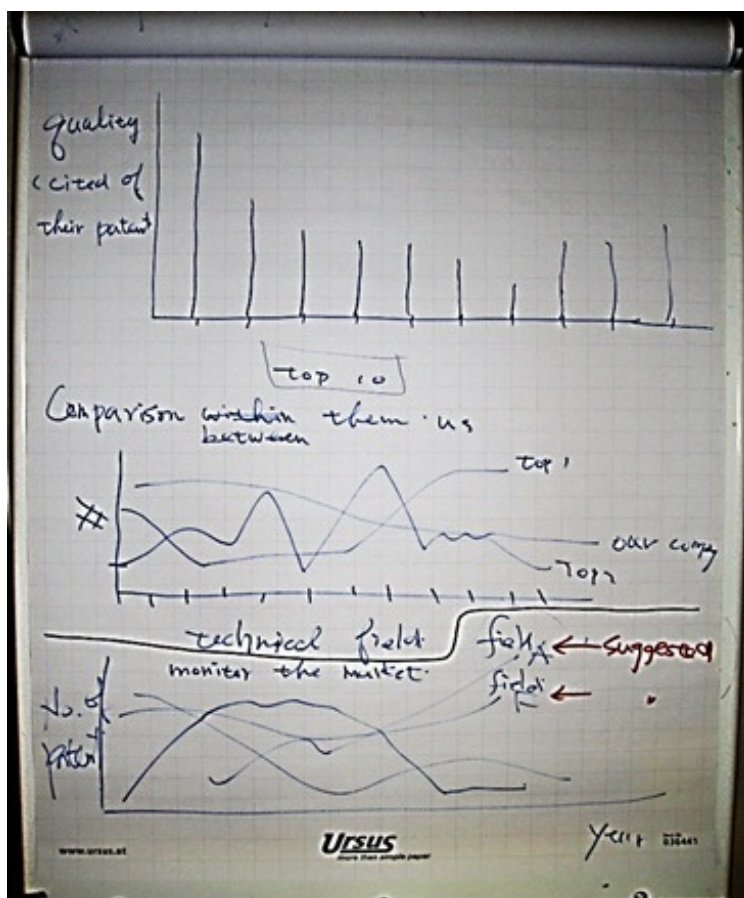 quality
(cited of
their patent
top 10
Comparison within them. us
between
#
top 1
our company
Top 2
technical field
monitor the market.
field A ← suggested
field F ←
No. of
patent
year
www.ursus.at
Ursus
more than simple paper
036441